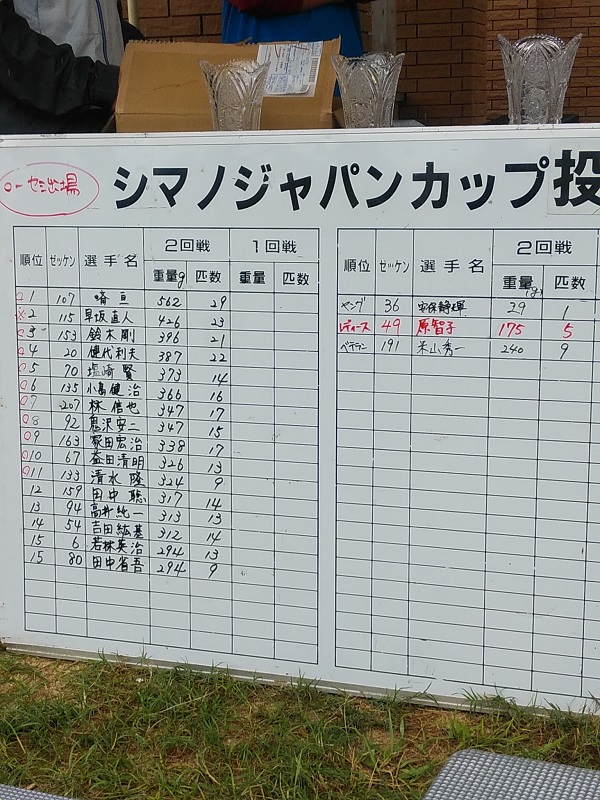 ○ーセミ出場
シマノジャパンカップ投
順位 ゼッケン 選手名 2回戦 1回戦
重量g 匹数 重量 匹数
○1 107 崎亘 562 29
×2 115 早坂直人 426 23
○3 153 鈴木剛 396 21
○4 20 健代利夫 387 22
○5 70 塩崎賢 373 14
○6 135 小畠健治 366 16
○7 207 林信也 347 17
○8 92 恩沢安二 347 15
○9 163 家田宏治 338 17
○10 67 益田清明 326 13
○11 133 清水隆 324 9
12 159 田中聡 317 14
13 94 高井純一 313 13
14 54 吉田紘基 312 14
15 6 若林英治 294 13
15 80 田中省吾 294 9
順位 ゼッケン 選手名 2回戦
重量(g) 匹数
ヤング 36 39 1
レディース 49 原智子 175 5
ベテラン 191 米山秀一 240 9